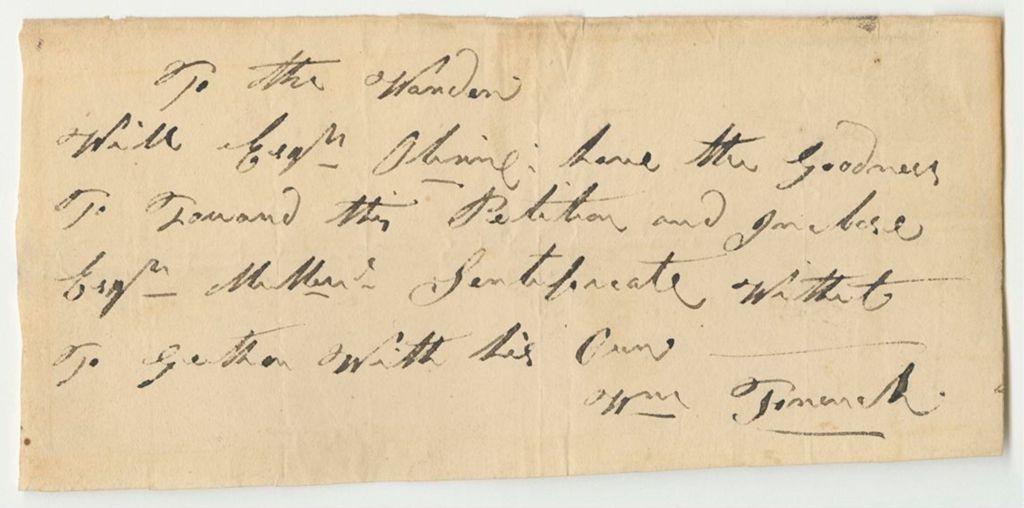 To the Warden
Will Esqr have the Goodness
To Forward this Petition and Inclose
Esqr Sertificate With it
To Gether With his Own
Wm